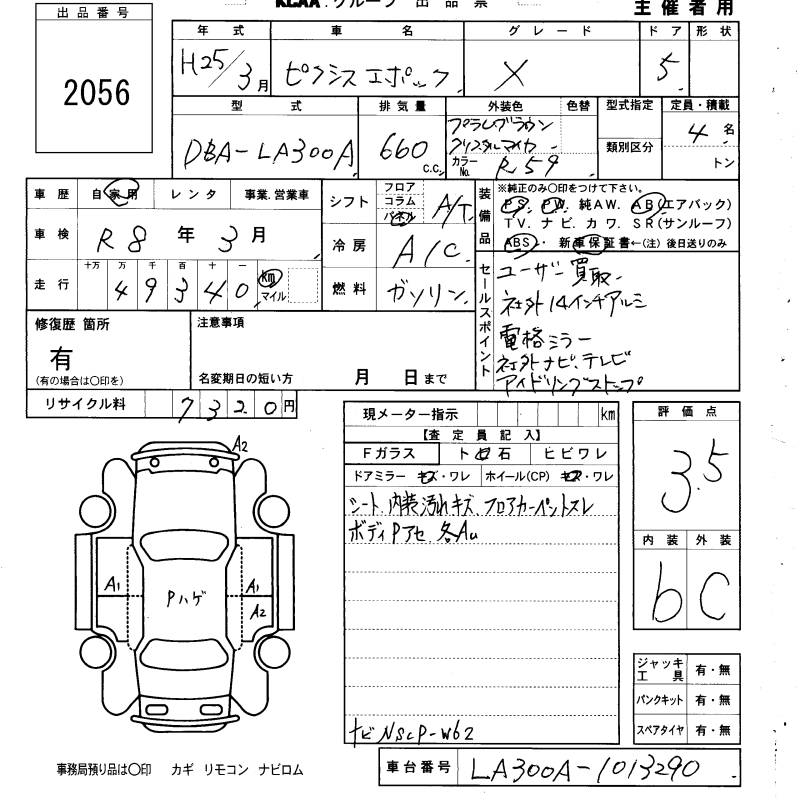 出品番号
2056
KCAA.グループ 出品票
主催者用
年式 車名 グレード ドア 形状
H25/3月 ピクシスエポック X 5
型式 排気量 外装色 色替 型式指定 定員・積載
DBA-LA300A 660 C.C. プラムブラウン
クリスタルマイカ
カラーNo. R59
類別区分
4名
トン
車歴 自家用 レンタ 事業.営業車
車検 R8年3月
走行 十万 万 千 百 十 一
4 9 3 4 0 km マイル
シフト フロア コラム パネル A/T
冷房 A/C
燃料 ガソリン
装備品
※純正のみ○印をつけて下さい。
PS. PW. 純AW. AB(エアバック)
TV. ナビ. カワ. SR(サンルーフ)
ABS・ 新車保証書←(注) 後日送りのみ
セールスポイント
ユーザー買取
社外14インチアルミ
電格ミラー
社外ナビ、テレビ
アイドリングストップ
修復歴 箇所
有
(有の場合は○印を)
注意事項
名変期日の短い方 月 日まで
リサイクル料 7320円
現メーター指示 km
【査定員記入】
Fガラス トビ石 ヒビワレ
ドアミラー キズ・ワレ ホイール(CP) キズ・ワレ
シート、内装汚れキズ フロアカーペットスレ
ボディPアセ 各Au
ナビNSCP-W62
評価点
3.5
内装 外装
b C
ジャッキ工具 有・無
パンクキット 有・無
スペアタイヤ 有・無
A2
A1
Pハゲ
A1
A2
事務局預り品は○印 カギ リモコン ナビロム
車台番号 LA300A-1013290